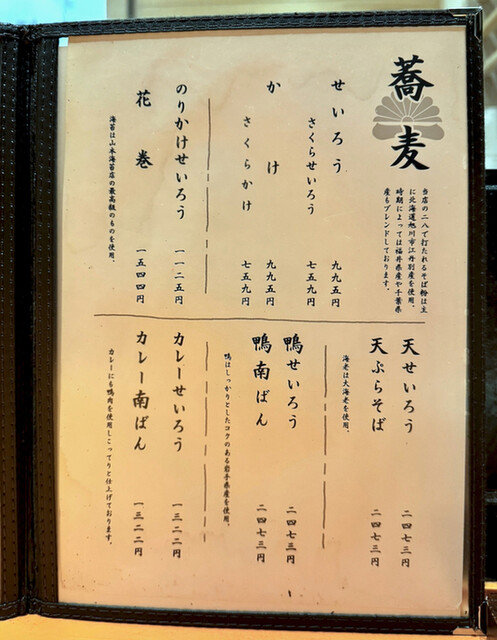 蕎麦
当店の二八で打たれるそば粉は主
に北海道旭川市江丹別産を使用。
時期によっては福井県産や千葉県
産もブレンドしております。
せいろう 九九五円
さくらせいろう 七五九円
かけ 九九五円
さくらかけ 七五九円
のりかけせいろう 一一二五円
花巻 一五四四円
海苔は山本海苔店の最高級のものを使用。
天せいろう 二四七三円
天ぷらそば 二四七三円
海老は大海老を使用。
鴨せいろう 二四七三円
鴨南ばん 二四七三円
鴨はしっかりとしたコクのある岩手県産を使用。
カレーせいろう 一三二二円
カレー南ばん 一三二二円
カレーにも鴨肉を使用しこってりと仕上げております。